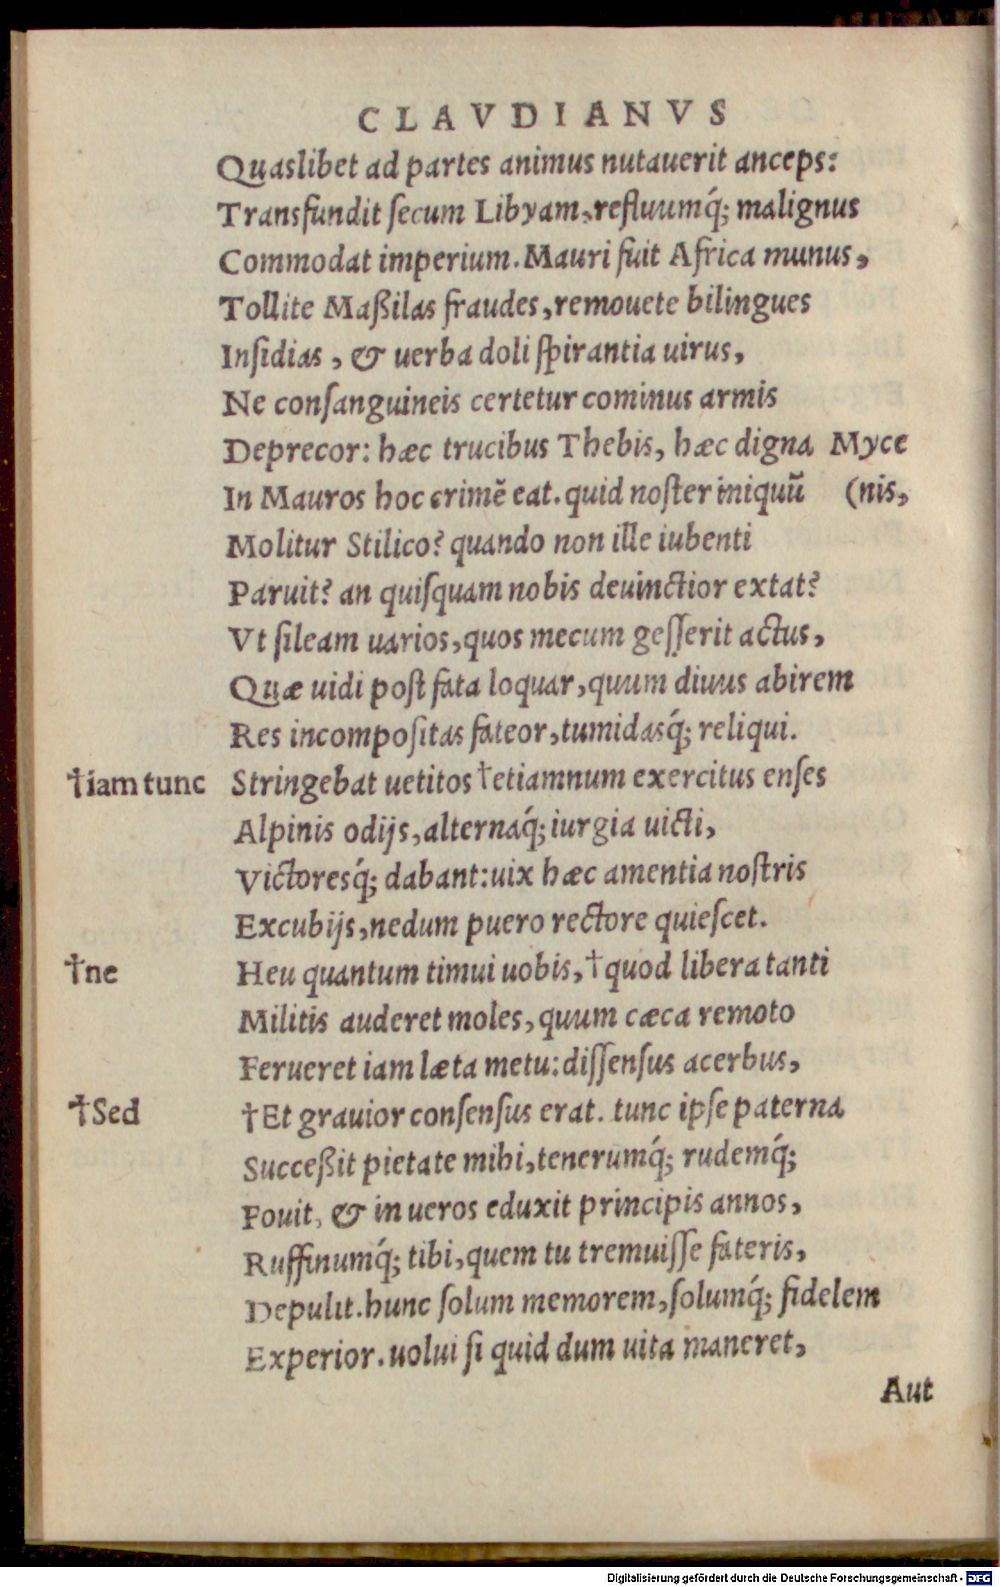 CLAVDIANVS
Quaslibet ad partes animus nutauerit anceps:
Transfundit ſecum Libyam, refluumq́; malignus
Commodat imperium. Mauri fuit Africa munus,
Tollite Maßilas fraudes, remouete bilingues
Inſidias, & uerba doli ſpirantia uirus,
Ne conſanguineis certetur cominus armis
Deprecor: hæc trucibus Thebis, hæc digna Myce
In Mauros hoc crimẽ eat. quid noſter iniquũ (nis,
Molitur Stilico? quando non ille iubenti
Paruit? an quiſquam nobis deuinctior extat?
Vt ſileam uarios, quos mecum geſſerit actus,
Quæ uidi poſt fata loquar, quum diuus abirem
Res incompoſitas fateor, tumidasq́; reliqui.
†iam tunc Stringebat uetitos †etiamnum exercitus enſes
Alpinis odijs, alternaq́; iurgia uicti,
Victoresq́; dabant: uix hæc amentia noſtris
Excubijs, nedum puero rectore quieſcet.
†ne Heu quantum timui uobis, †quod libera tanti
Militis auderet moles, quum cæca remoto
Ferueret iam læta metu: diſſenſus acerbus,
†Sed †Et grauior conſenſus erat. tunc ipſe paterna
Succeßit pietate mihi, tenerumq́; rudemq́;
Fouit, & in ueros eduxit principis annos,
Ruffinumq́; tibi, quem tu tremuiſſe fateris,
Depulit. hunc ſolum memorem, ſolumq́; fidelem
Experior. uolui ſi quid dum uita maneret,
Aut
Digitalisierung gefördert durch die Deutsche Forschungsgemeinschaft - DFG